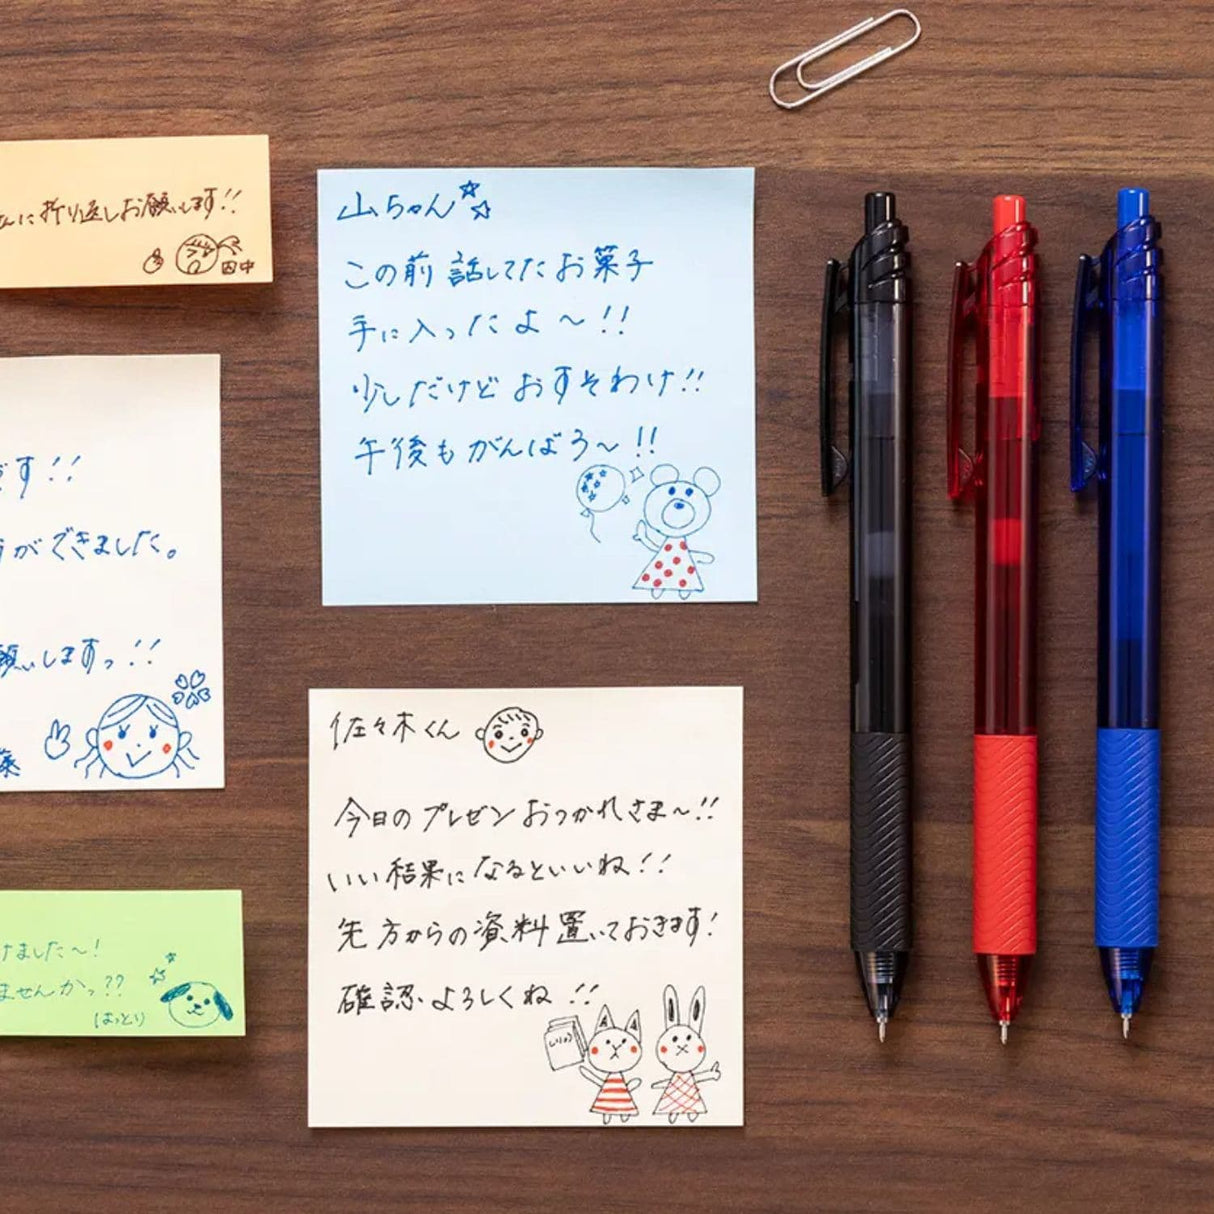 んに折り返しお願いします!!
田中
です!!
ができました。
願いしますっ!!
けました〜!
ませんかっ??
はっとり
山ちゃん
この前話してたお菓子
手に入ったよ〜!!
少しだけどおすそわけ!!
午後もがんばろ〜!!
佐々木くん
今日のプレゼンおつかれさま〜!!
いい結果になるといいね!!
先方からの資料置いておきます!
確認よろしくね!!
しりょう